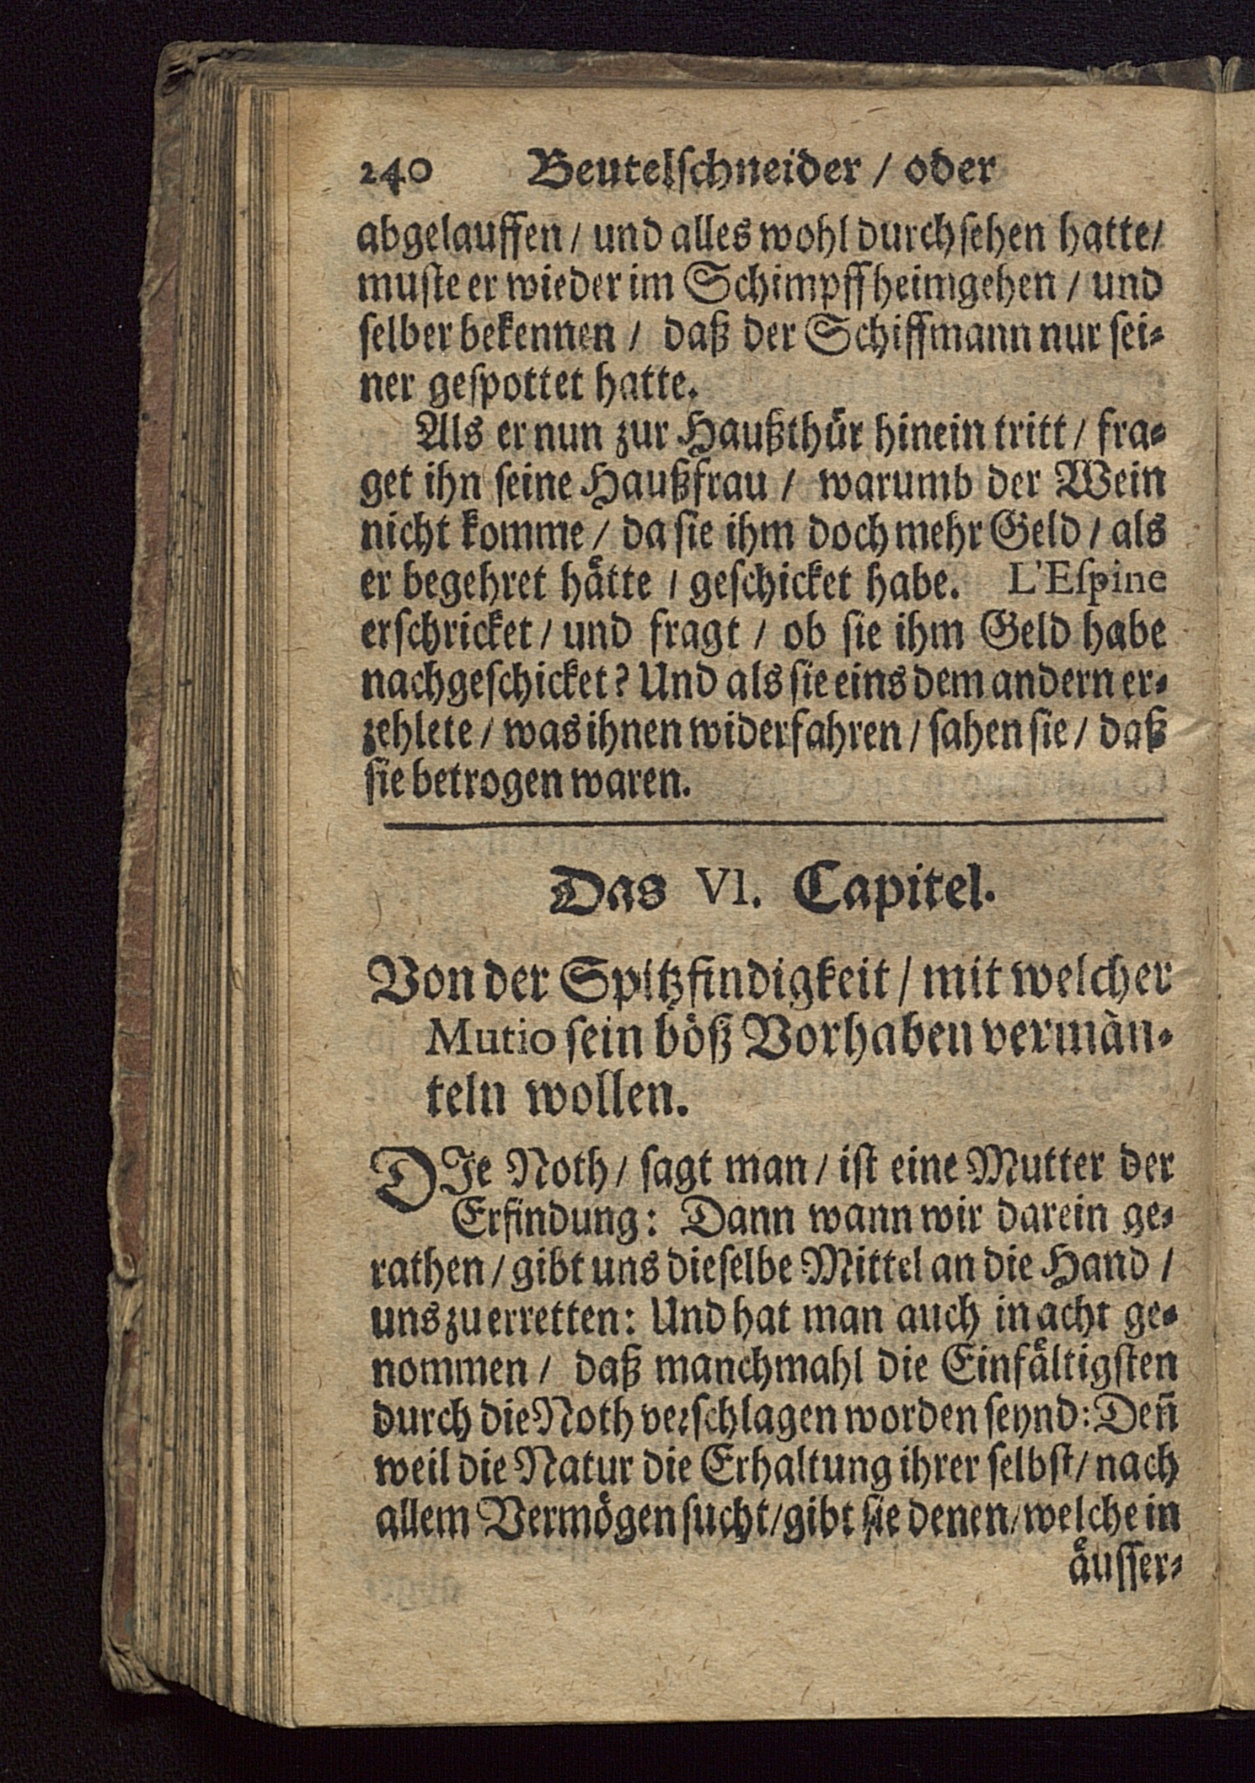 240 Beutelschneider / oder
abgelauffen / und alles wohl durchsehen hatte /
muste er wieder im Schimpff heimgehen / und
selber bekennen / daß der Schiffmann nur sei-
ner gespottet hatte.
Als er nun zur Haußthür hinein tritt / fra-
get ihn seine Haußfrau / warumb der Wein
nicht komme / da sie ihm doch mehr Geld / als
er begehret hätte / geschicket habe. L'Espine
erschricket / und fragt / ob sie ihm Geld habe
nachgeschicket? Und als sie eins dem andern er-
zehlete / was ihnen widerfahren / sahen sie / daß
sie betrogen waren.
Das VI. Capitel.
Von der Spitzfindigkeit / mit welcher
Mutio sein böß Vorhaben vermän-
teln wollen.
DIe Noth / sagt man / ist eine Mutter der
Erfindung: Dann wann wir darein ge-
rathen / gibt uns dieselbe Mittel an die Hand /
uns zu erretten: Und hat man auch in acht ge-
nommen / daß manchmahl die Einfältigsten
durch die Noth verschlagen worden seynd: Deñ
weil die Natur die Erhaltung ihrer selbst / nach
allem Vermögen sucht / gibt sie denen / welche in
äusser-